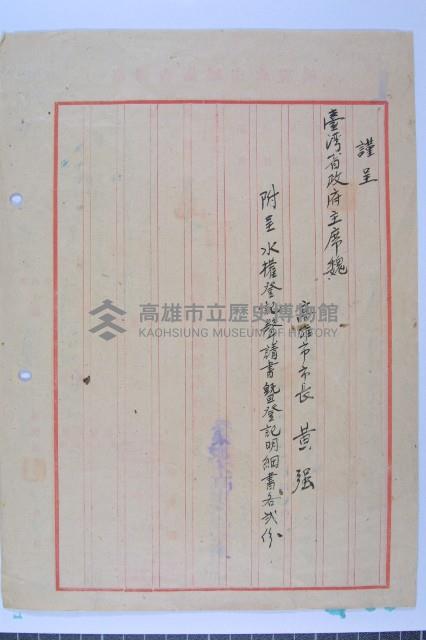 謹呈
臺灣省政府主席魏
高雄市市長 黃强
附呈水權登記聲請書暨登記明細書各弍份
高雄市立歷史博物館
KAOHSIUNG MUSEUM OF HISTORY